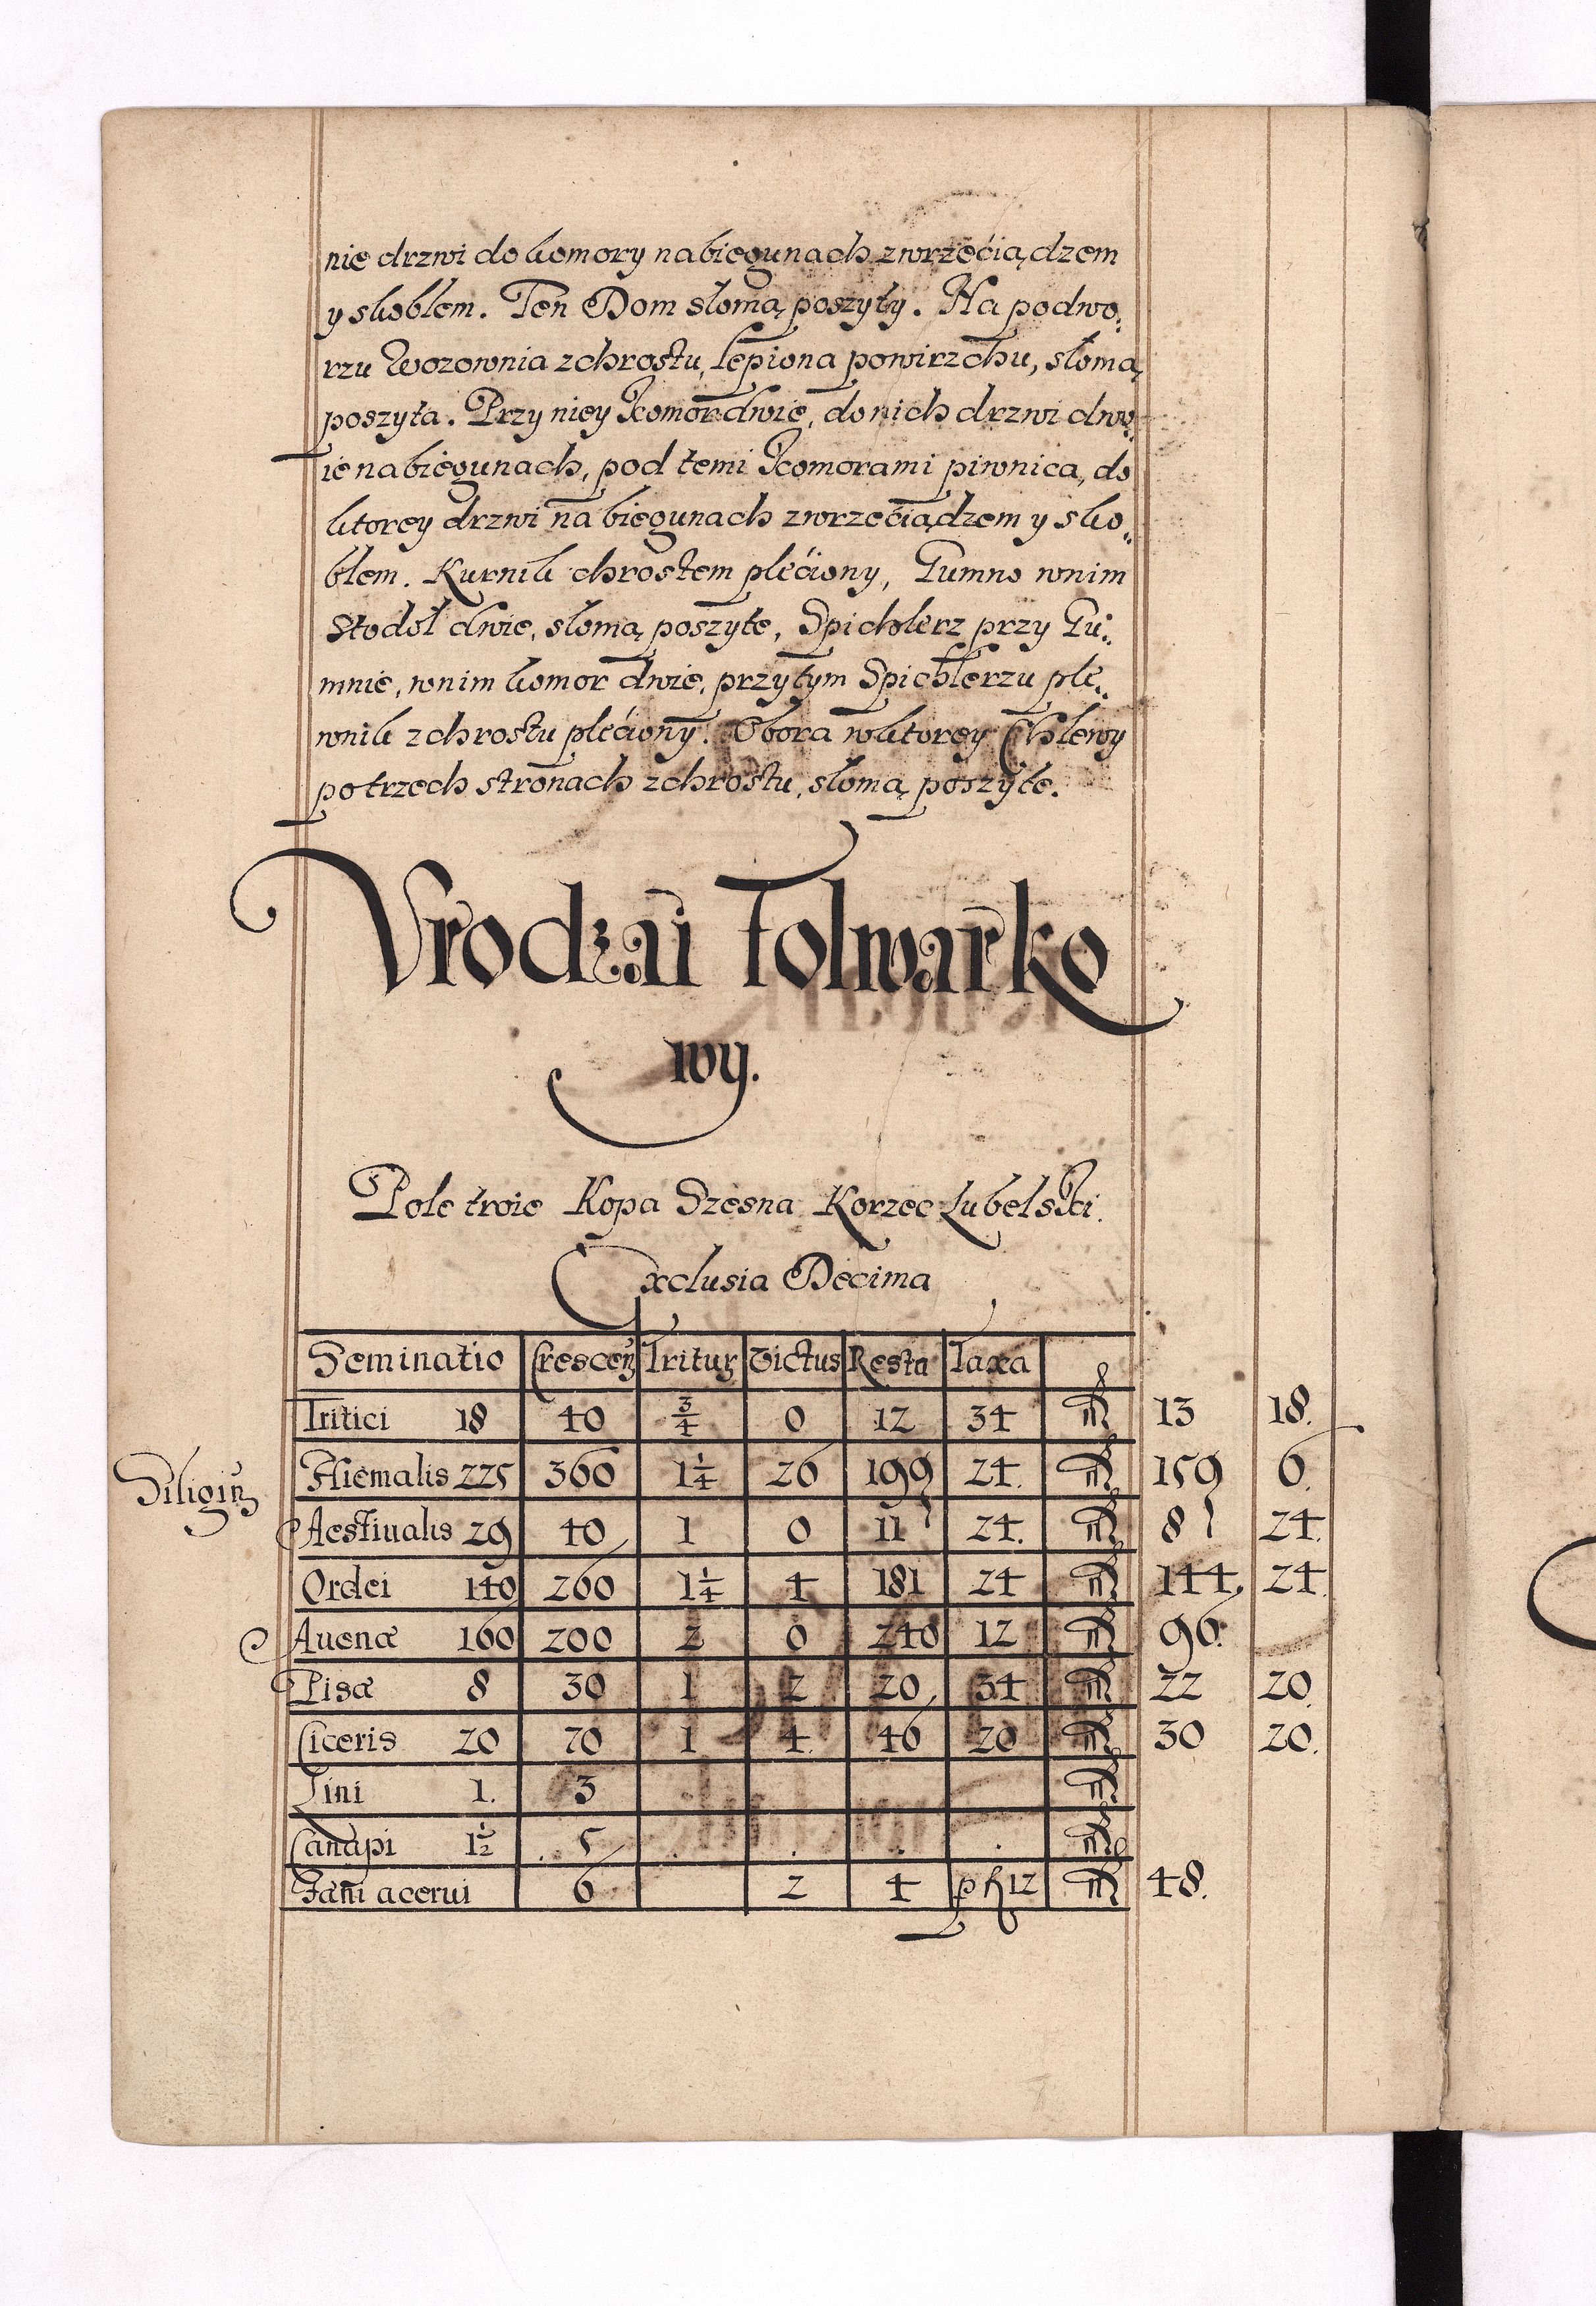 nie drzwi do komory na biegunach z wrzeciądzem
y skoblem. Ten Dom słomą poszyty. Na podwo„
rzu Wozownia z chrostu, lepiona powirzchu, słomą
poszyta. Przy niey Komor dwie, do nich drzwi dwo„
ie na biegunach, pod temi Komorami piwnica, do
ktorey drzwi na biegunach z wrzeciądzem y sko„
blem. Kurnik chrostem plećiony, Gumno w nim
Stodół dwie, słomą poszyte, Spichlerz przy Gu„
mnie, w nim komor dwie, przy tym Spichlerzu ple„
wnik z chrostu plećiony. Obora w ktorey Chlewy
po trzech stronach z chrostu, słomą poszyte.
Vrodzai Folwarko
wy.
Pole troie Kopa Szesna Korzec Lubelski.
Exclusia Decima
Seminatio Crescen Tritur Victus Resta Taxa
Tritici 18 40 3/4 0 12 34 13 18.
Siligin Hiemalis 225 360 1 1/4 26 199 24. 159 6.
Aestiualis 29 40 1 0 11 24. 8 24.
Ordei 140 260 1 1/4 4 181 24 144, 24.
Auenæ 160 200 2 0 240 12 96.
Pisæ 8 30 1 2 20 34 22 20.
Ciceris 20 70 1 4. 46 20 30 20.
Lini 1. 3
Canapi 1 1/2 5
Fæni acerui 6 2 4 12 48.